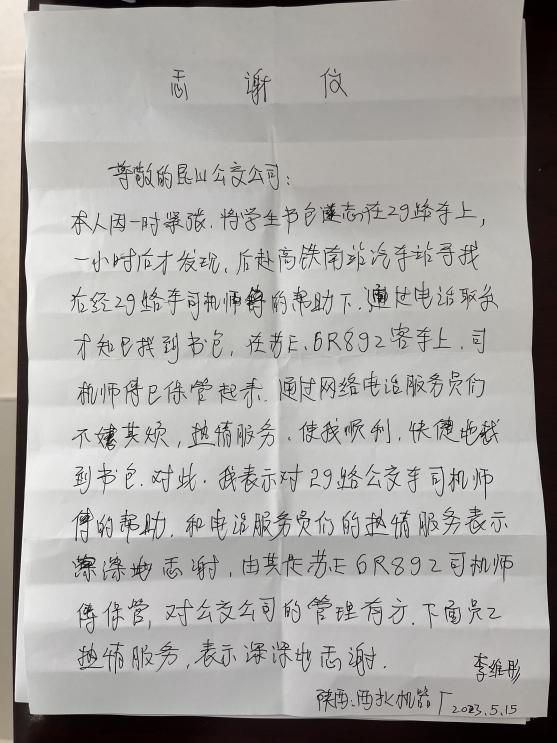 志谢信
尊敬的昆山公交公司:
本人因一时紧张.将学生书包遗志在29路车上,
一小时后才发现,后赴高铁南站汽车站寻找
在经29路车司机师傅的帮助下.通过电话联系
才知已找到书包,在苏E.6R892客车上,司
机师傅已保管起来.通过网络电话服务员们
不嫌其烦,热情服务.使我顺利,快捷地找
到书包.对此.我表示对29路公交车司机师
傅的帮助.和电话服务员们的热情服务表示
深深地志谢,由其在苏E6R892司机师
傅保管,对公交公司的管理有方.下面员工
热情服务,表示深深地志谢.
李维彤
陕西:西北机器厂2023.5.15